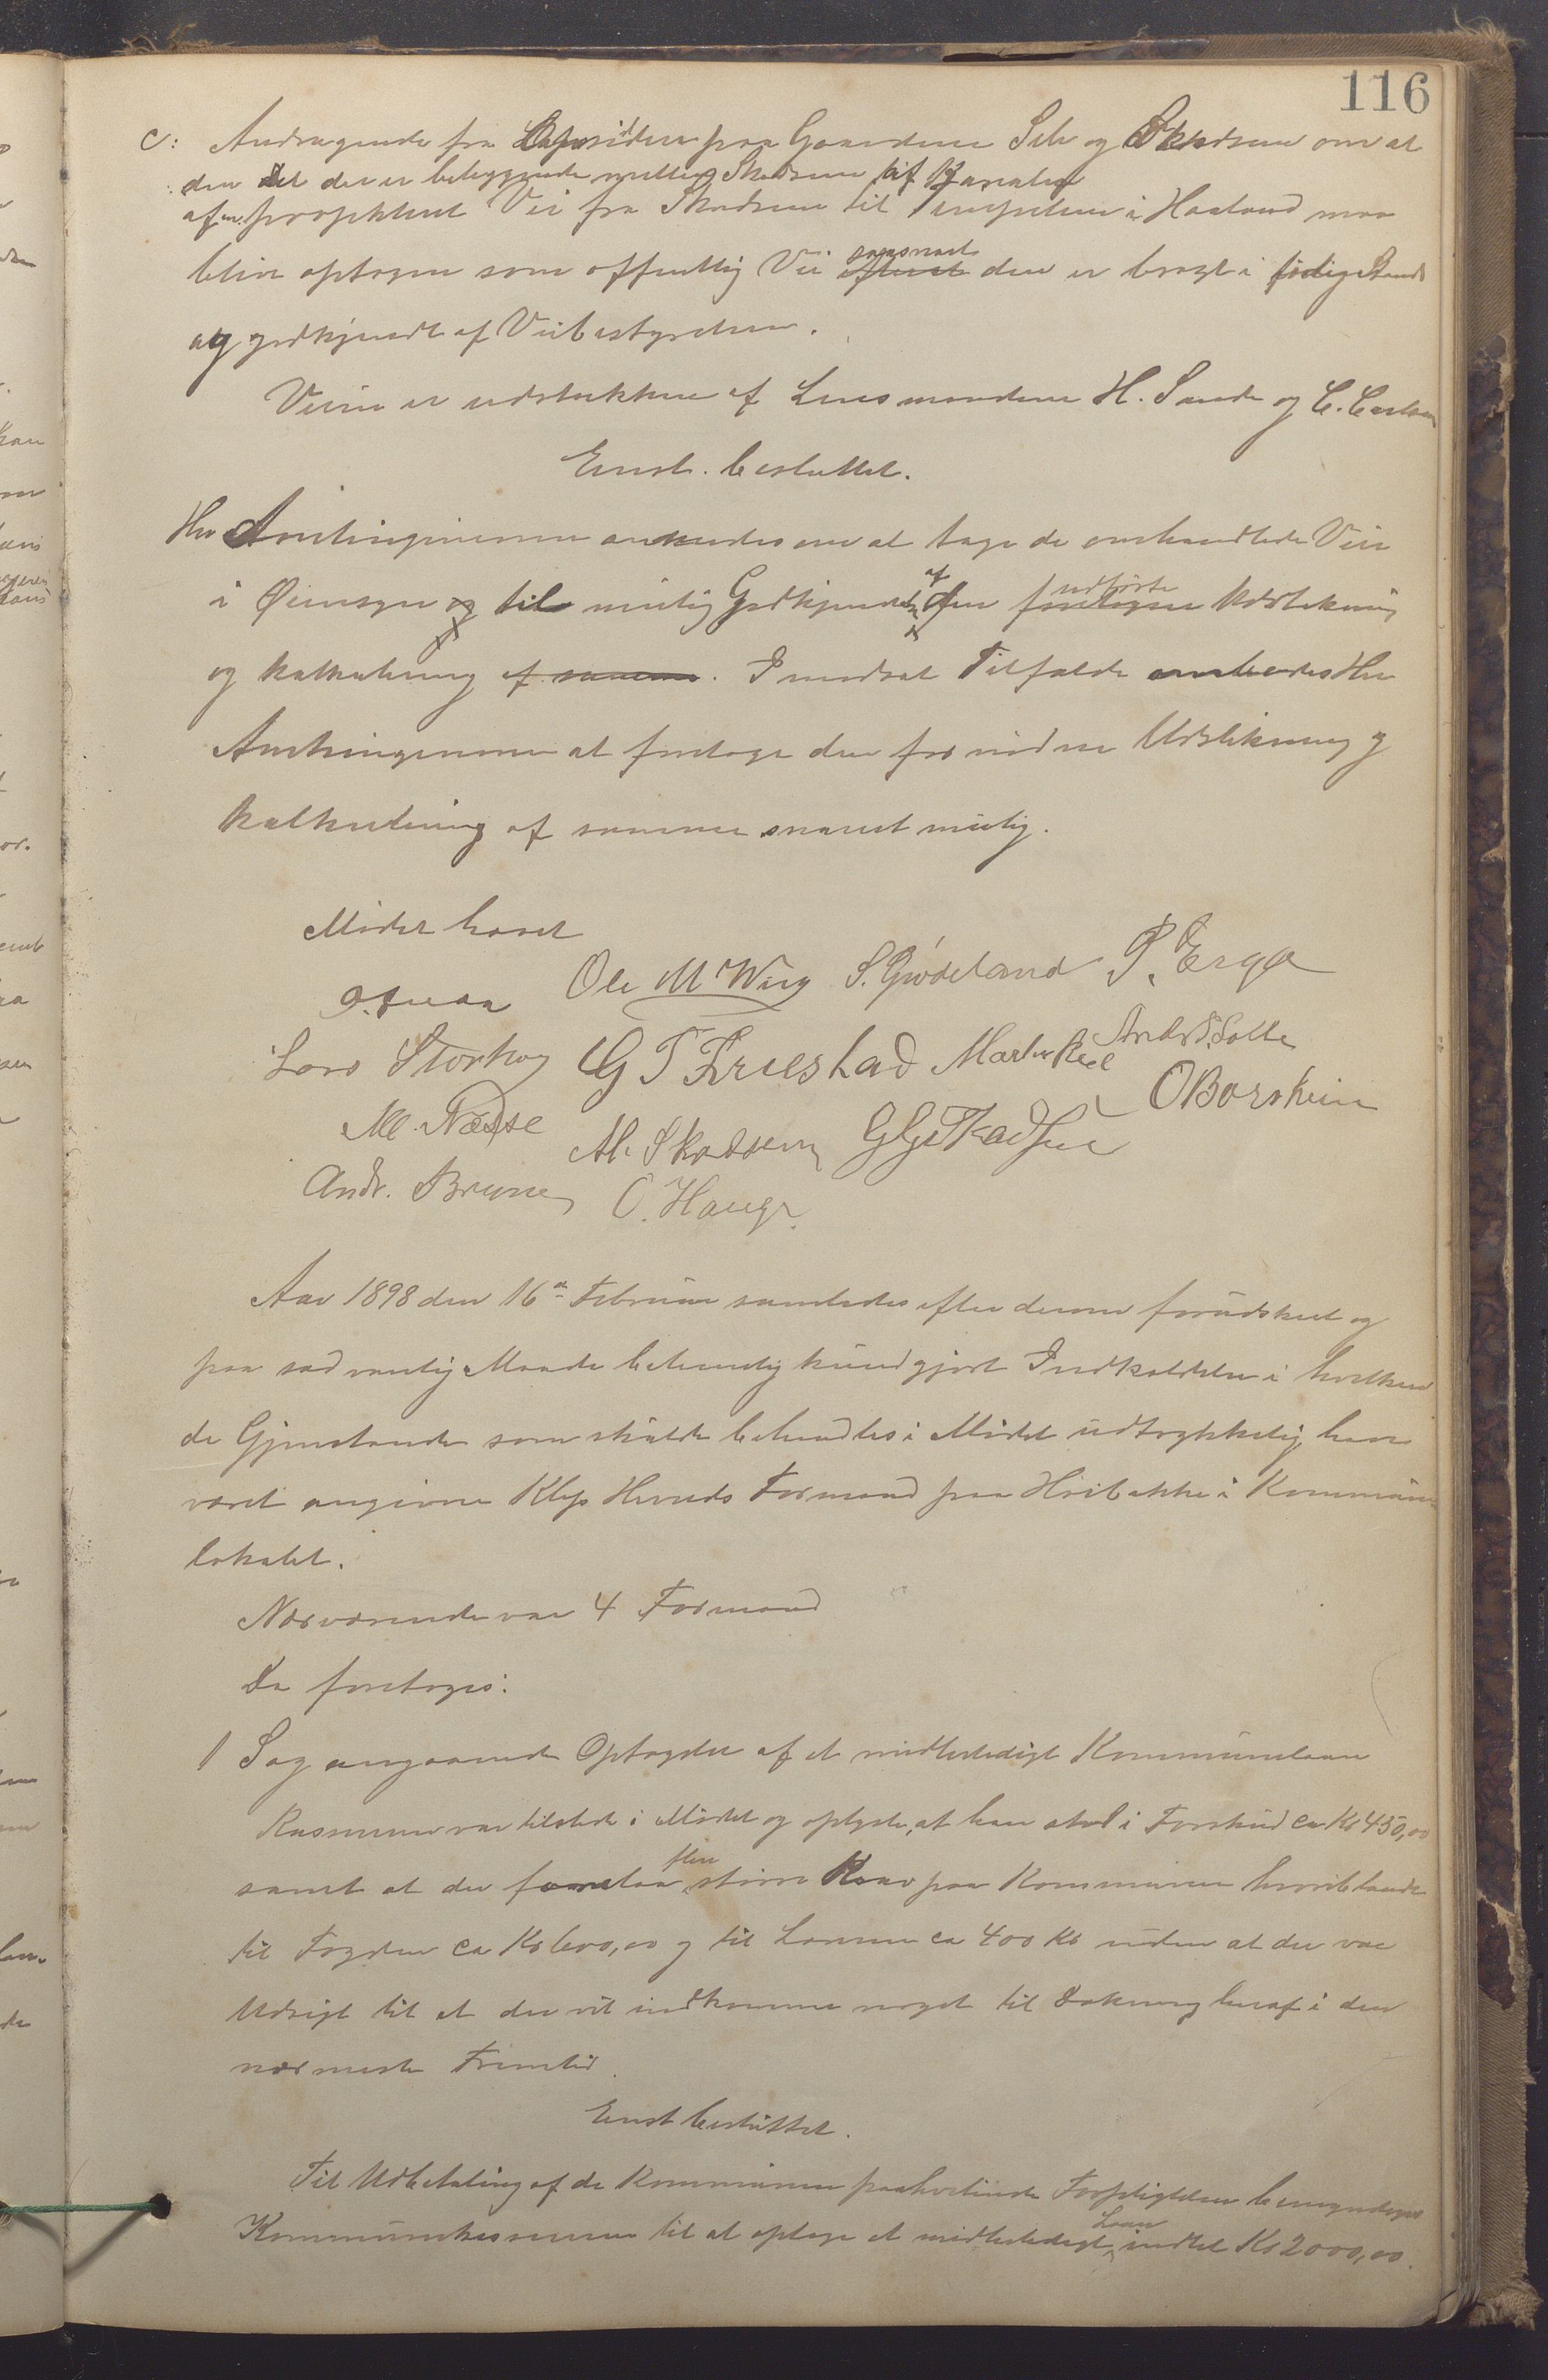 116
c: Andragende fra Opsidderne paa Gaardene Sele og Skadsem om at
den Del der er beliggende mellem Skadsem til Kanalen
af en projekteret Vei fra Skadsem til Tungelen i Haaland maa
blive optagen som offentlig Vei saasnart den er bragt i færdig Stand
og godkjendt af Veibestyrelsen.
Veien er udstukken af Lensmændene H. Sande og C. Carlsen
Enst. besluttet.
Hr Amtsingeniøren anmodes om at tage de omhandlede Veie
i Øiensyn til mulig Godkjendelse af den udførte Udstikning
og kalkulering af samme. I modsat Tilfælde anmodes Hr
Amtsingeniøren at foretage den fornødne Udstikning og
kalkulering af samme snarest mulig.
Mødet hævet
O. Braa Ole M Wiig S. Gjødeland P. Erga
Lars Storhoug G T Friestad Martin Reel Andr. S. Salte
M. Næsse M. Skadsem G G Skadsem O Borsheim
Andr. Brunes O. Hauge.
Aar 1898 den 16de Februar samledes efter dennes forudskeet og
paa sædvanlig Maade betimelig kundgjort Indkaldelse i hvilken
de Gjenstande som skulde behandles i Mødet udtrykkelig have
været angivne Klep Herreds Formænd paa Hølbakke i Kommune
lokalet.
Nærværende var 4 Formænd
Da foretoges:
1 Sag angaaende Optagelse af et midlertidigt Kommunelaan
Kassereren var tilstede i Mødet og oplyste, at han stod i Forskud ca Kr 450,00
samt at der forelaa flere større Krav paa Kommunen hvoriblandt
til Fogden ca Kr 600,00 og til Lærerne ca 400 Kr uden at der var
Udsigt til at der vil indkomme noget til Dækning heraf i den
nærmeste Fremtid.
Enst besluttet.
Til Udbetaling af de Kommunen paahvilende Forpligtelser bemyndiges
Kommunekassereren til at optage et midlertidigt Laan indtil Kr 2000,00.